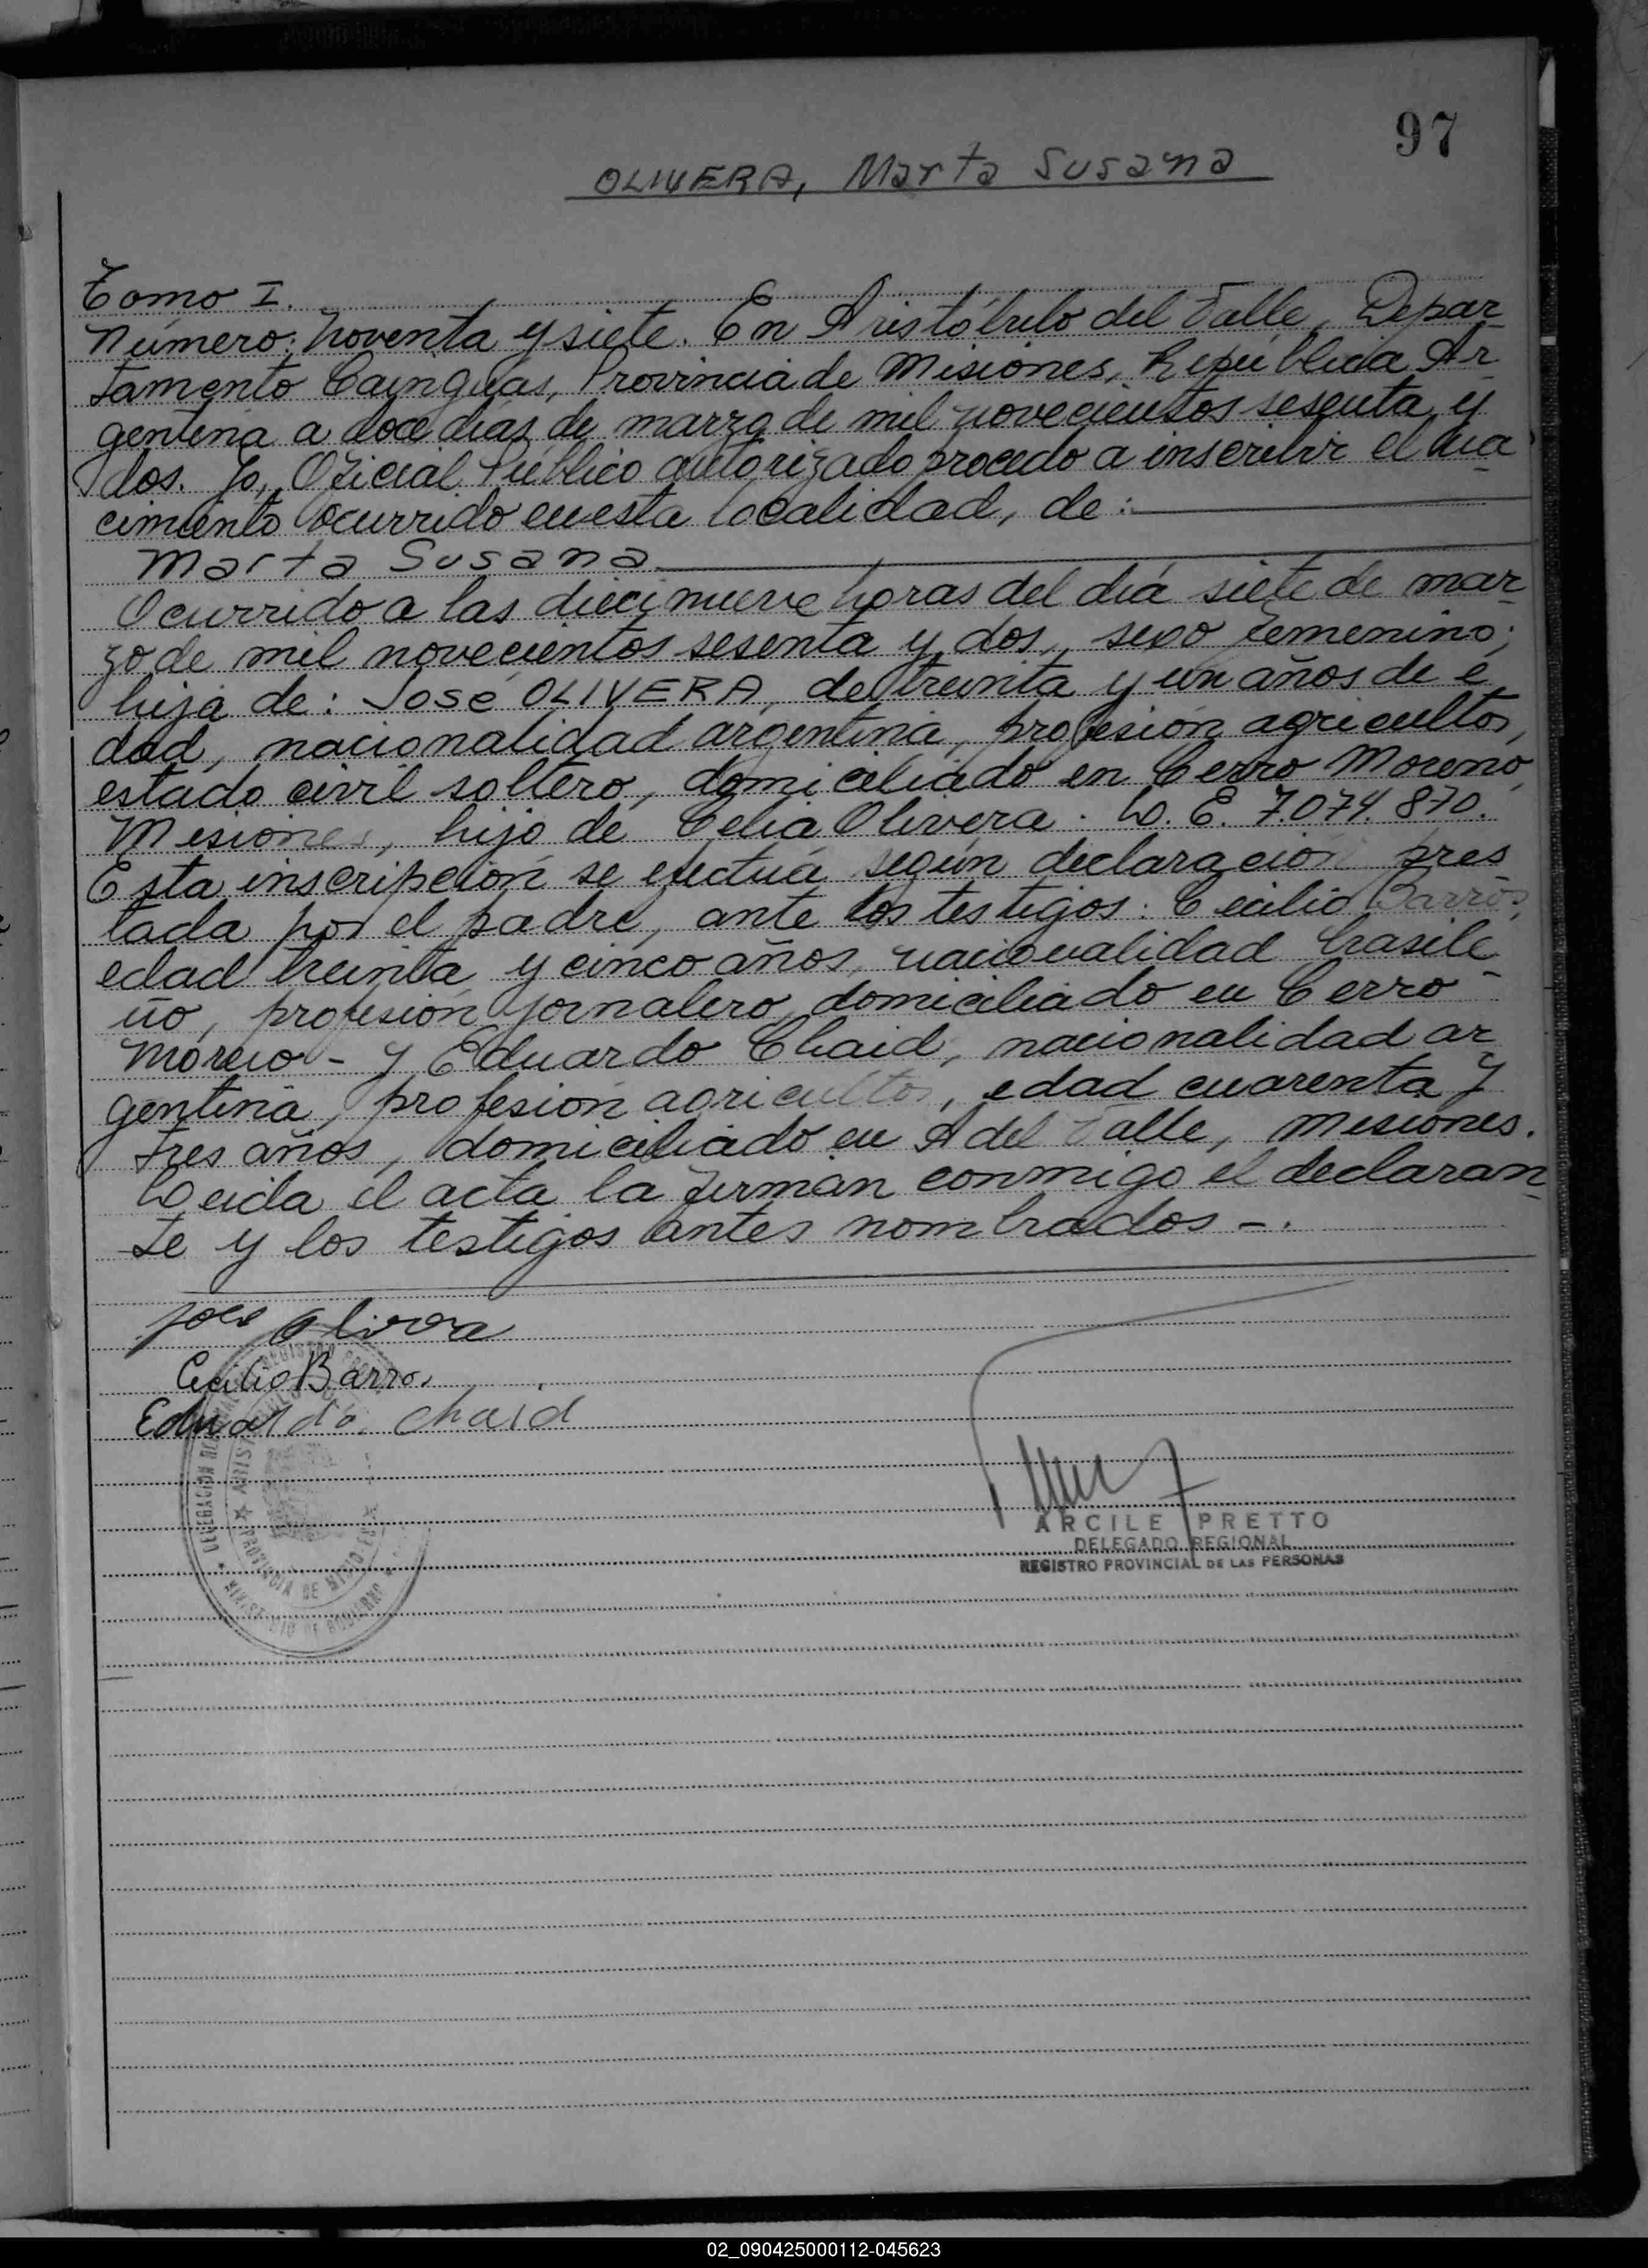 97
OLIVERA, Marta Susana
Tomo I.
Número: Noventa y siete. En Aristóbulo del Valle, Depar
tamento Cainguas, Provincia de Misiones, República Ar
gentina a doce días de marzo de mil novecientos sesenta y
dos. Yo, Oficial Público autorizado procedo a inscribir el na
cimiento ocurrido en esta localidad, de:
Marta Susana
Ocurrido a las diecinueve horas del día siete de mar
zo de mil novecientos sesenta y dos, sexo femenino;
hija de: José OLIVERA, de treinta y un años de e
dad, nacionalidad argentina, profesión agricultor,
estado civil soltero, domiciliado en Cerro Moreno,
Misiones, hijo de Celia Olivera. L. E. 7.074.870.
Esta inscripción se efectúa según declaración pres
tada por el padre, ante los testigos: Cecilio Barros,
edad treinta y cinco años, nacionalidad brasile
ño, profesión jornalero, domiciliado en Cerro
Moreno - y Eduardo Chaid, nacionalidad ar
gentina, profesión agricultor, edad cuarenta y
tres años, domiciliado en A del Valle, Misiones.
Leida el acta la firman conmigo el declaran
te y los testigos antes nombrados -.
Jose Olivera
Cecilio Barro
Eduardo Chaid
ARCILE PRETTO
DELEGADO REGIONAL
REGISTRO PROVINCIAL DE LAS PERSONAS
PROVINCIA DE MISIONES
MINISTERIO DE GOBIERNO
02_090425000112-045623